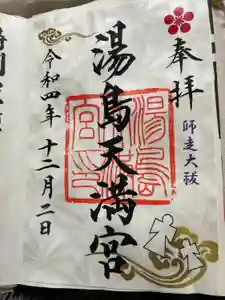 奉拝
師走大祓
湯島天満宮
湯島
宮印
令和四年 十二月二日